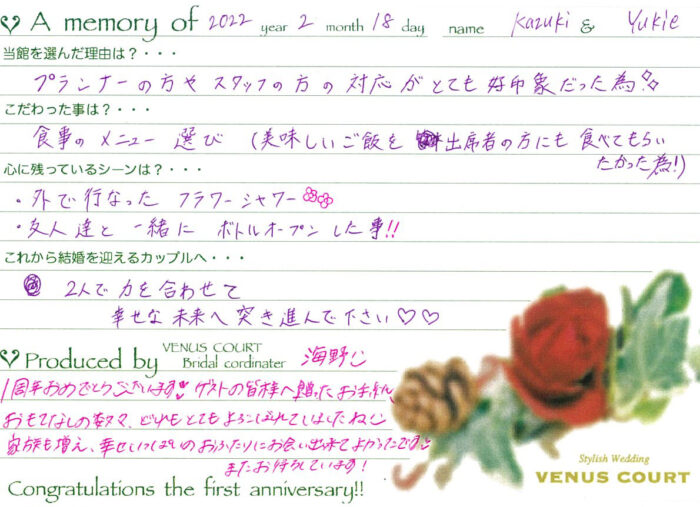 A memory of 2022 year 2 month 18 day name Kazuki & Yukie
当館を選んだ理由は？・・・
プランナーの方やスタッフの方の対応がとても好印象だった為!!
こだわった事は？・・・
食事のメニュー選び (美味しいご飯を出席者の方にも食べてもらい
たかった為!)
心に残っているシーンは？・・・
・外で行なったフラワーシャワー
・友人達と一緒にボトルオープンした事!!
これから結婚を迎えるカップルへ・・・
2人で力を合わせて
幸せな未来へ突き進んで下さい♡♡
Produced by VENUS COURT Bridal cordinater 海野
1周年おめでとうございます ゲストの皆様へ贈ったお手紙
おもてなしの数々、どれもとてもよろこばれていましたね
家族も増え、幸せいっぱいのおふたりにお会い出来てよかったです
またお待ちしています!
Stylish Wedding
VENUS COURT
Congratulations the first anniversary!!